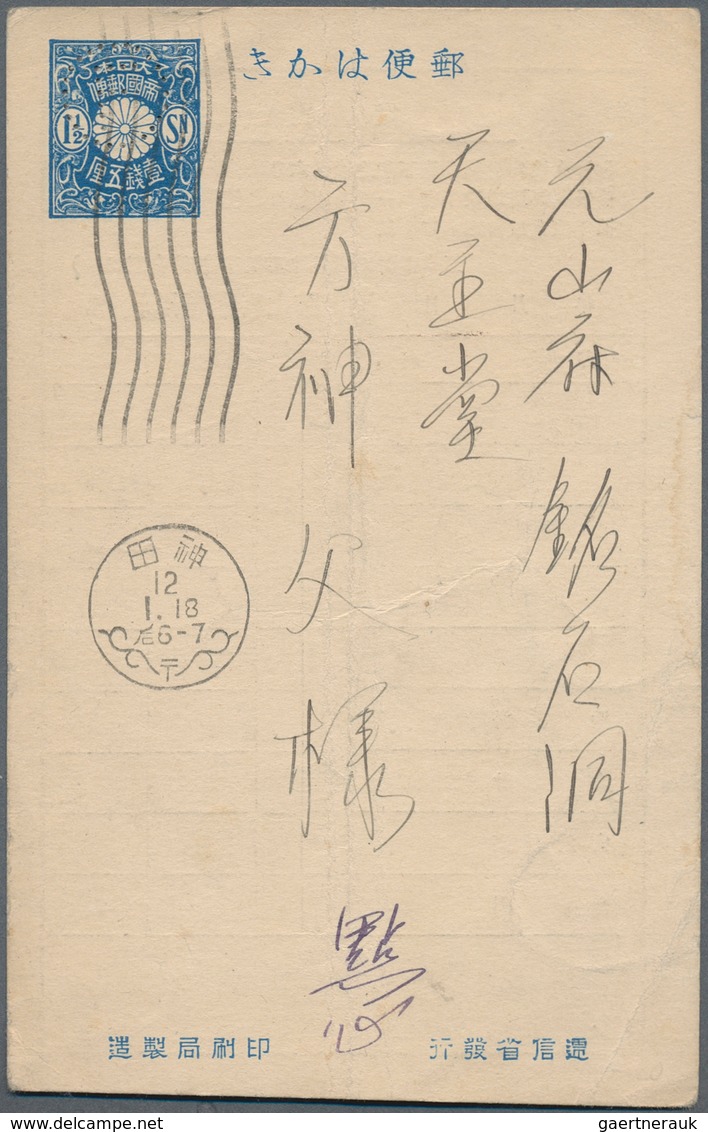 郵便はかき
大日本
帝國郵便
1½ SN
壹錢五厘
元山府 銘石洞
天主堂
方神父様
神田
12
1.18
后6-7
〒
點心
遞信省發行 印刷局製造
gaertnerauk